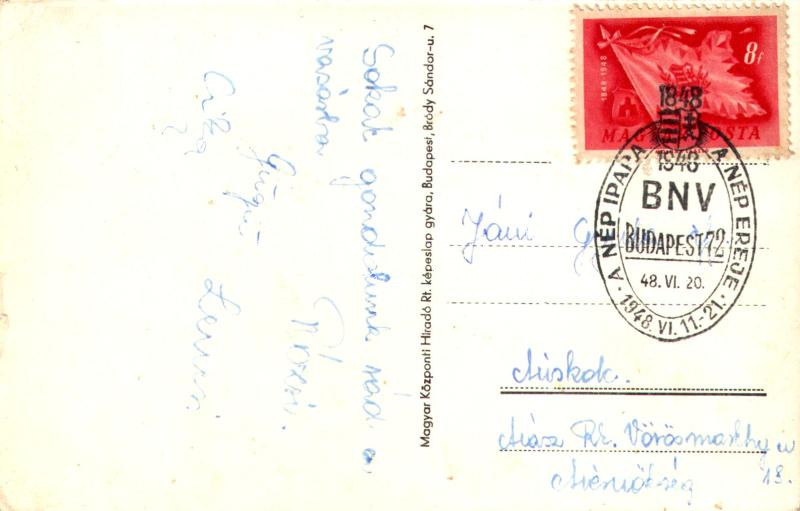 Sokat gondolunk rád a
vásárba
Rózsi.
Gyuszi
Lenci
Magyar Központi Híradó Rt. képeslap gyára, Budapest, Bródy Sándor-u. 7
8f
1848-1948
MAGYAR POSTA
1848
1948
· A NÉP IPARA A NÉP EREJE ·
BNV
BUDAPEST 72
48. VI. 20.
1948. VI. 11.-21.
Jáni
Miskolc.
Mász Rt. Vörösmarthy u
18.
Mérnökség